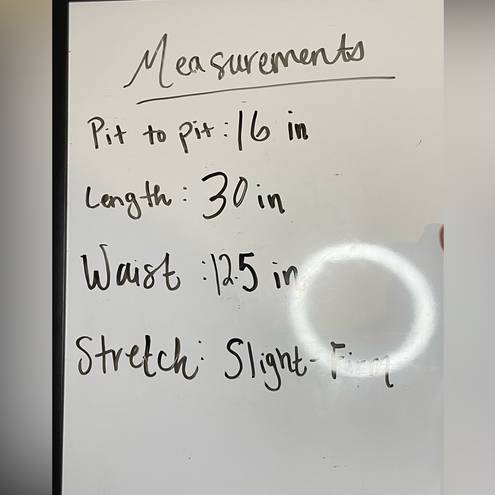 Measurements
Pit to pit: 16 in
Length: 30 in
Waist: 12.5 in
Stretch: Slight-Firm